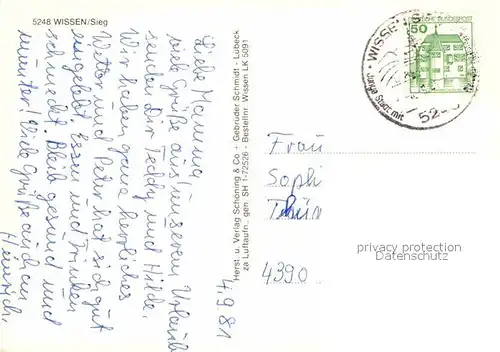 5248 WISSEN/Sieg
Liebe Mamma,
viele Grüße aus unserem Urlaub
senden Dir Teddy und Hilde.
Wir haben ganz herrliches
Wetter und Peter hat sich gut
eingelebt. Essen und Trinken
schmeckt. Bleib gesund und
munter! Viele Grüße auch an
Heinrich.
4.9.81
Herst. u. Verlag Schöning & Co + Gebrüder Schmidt - Lübeck
za Luftaufn. gen. SH 1-72526 - Bestellnr. Wissen LK 5091
WISSEN
Junge Stadt mit
52
50
DEUTSCHE BUNDESPOST
Frau
Soph
Thün
4390
privacy protection
Datenschutz